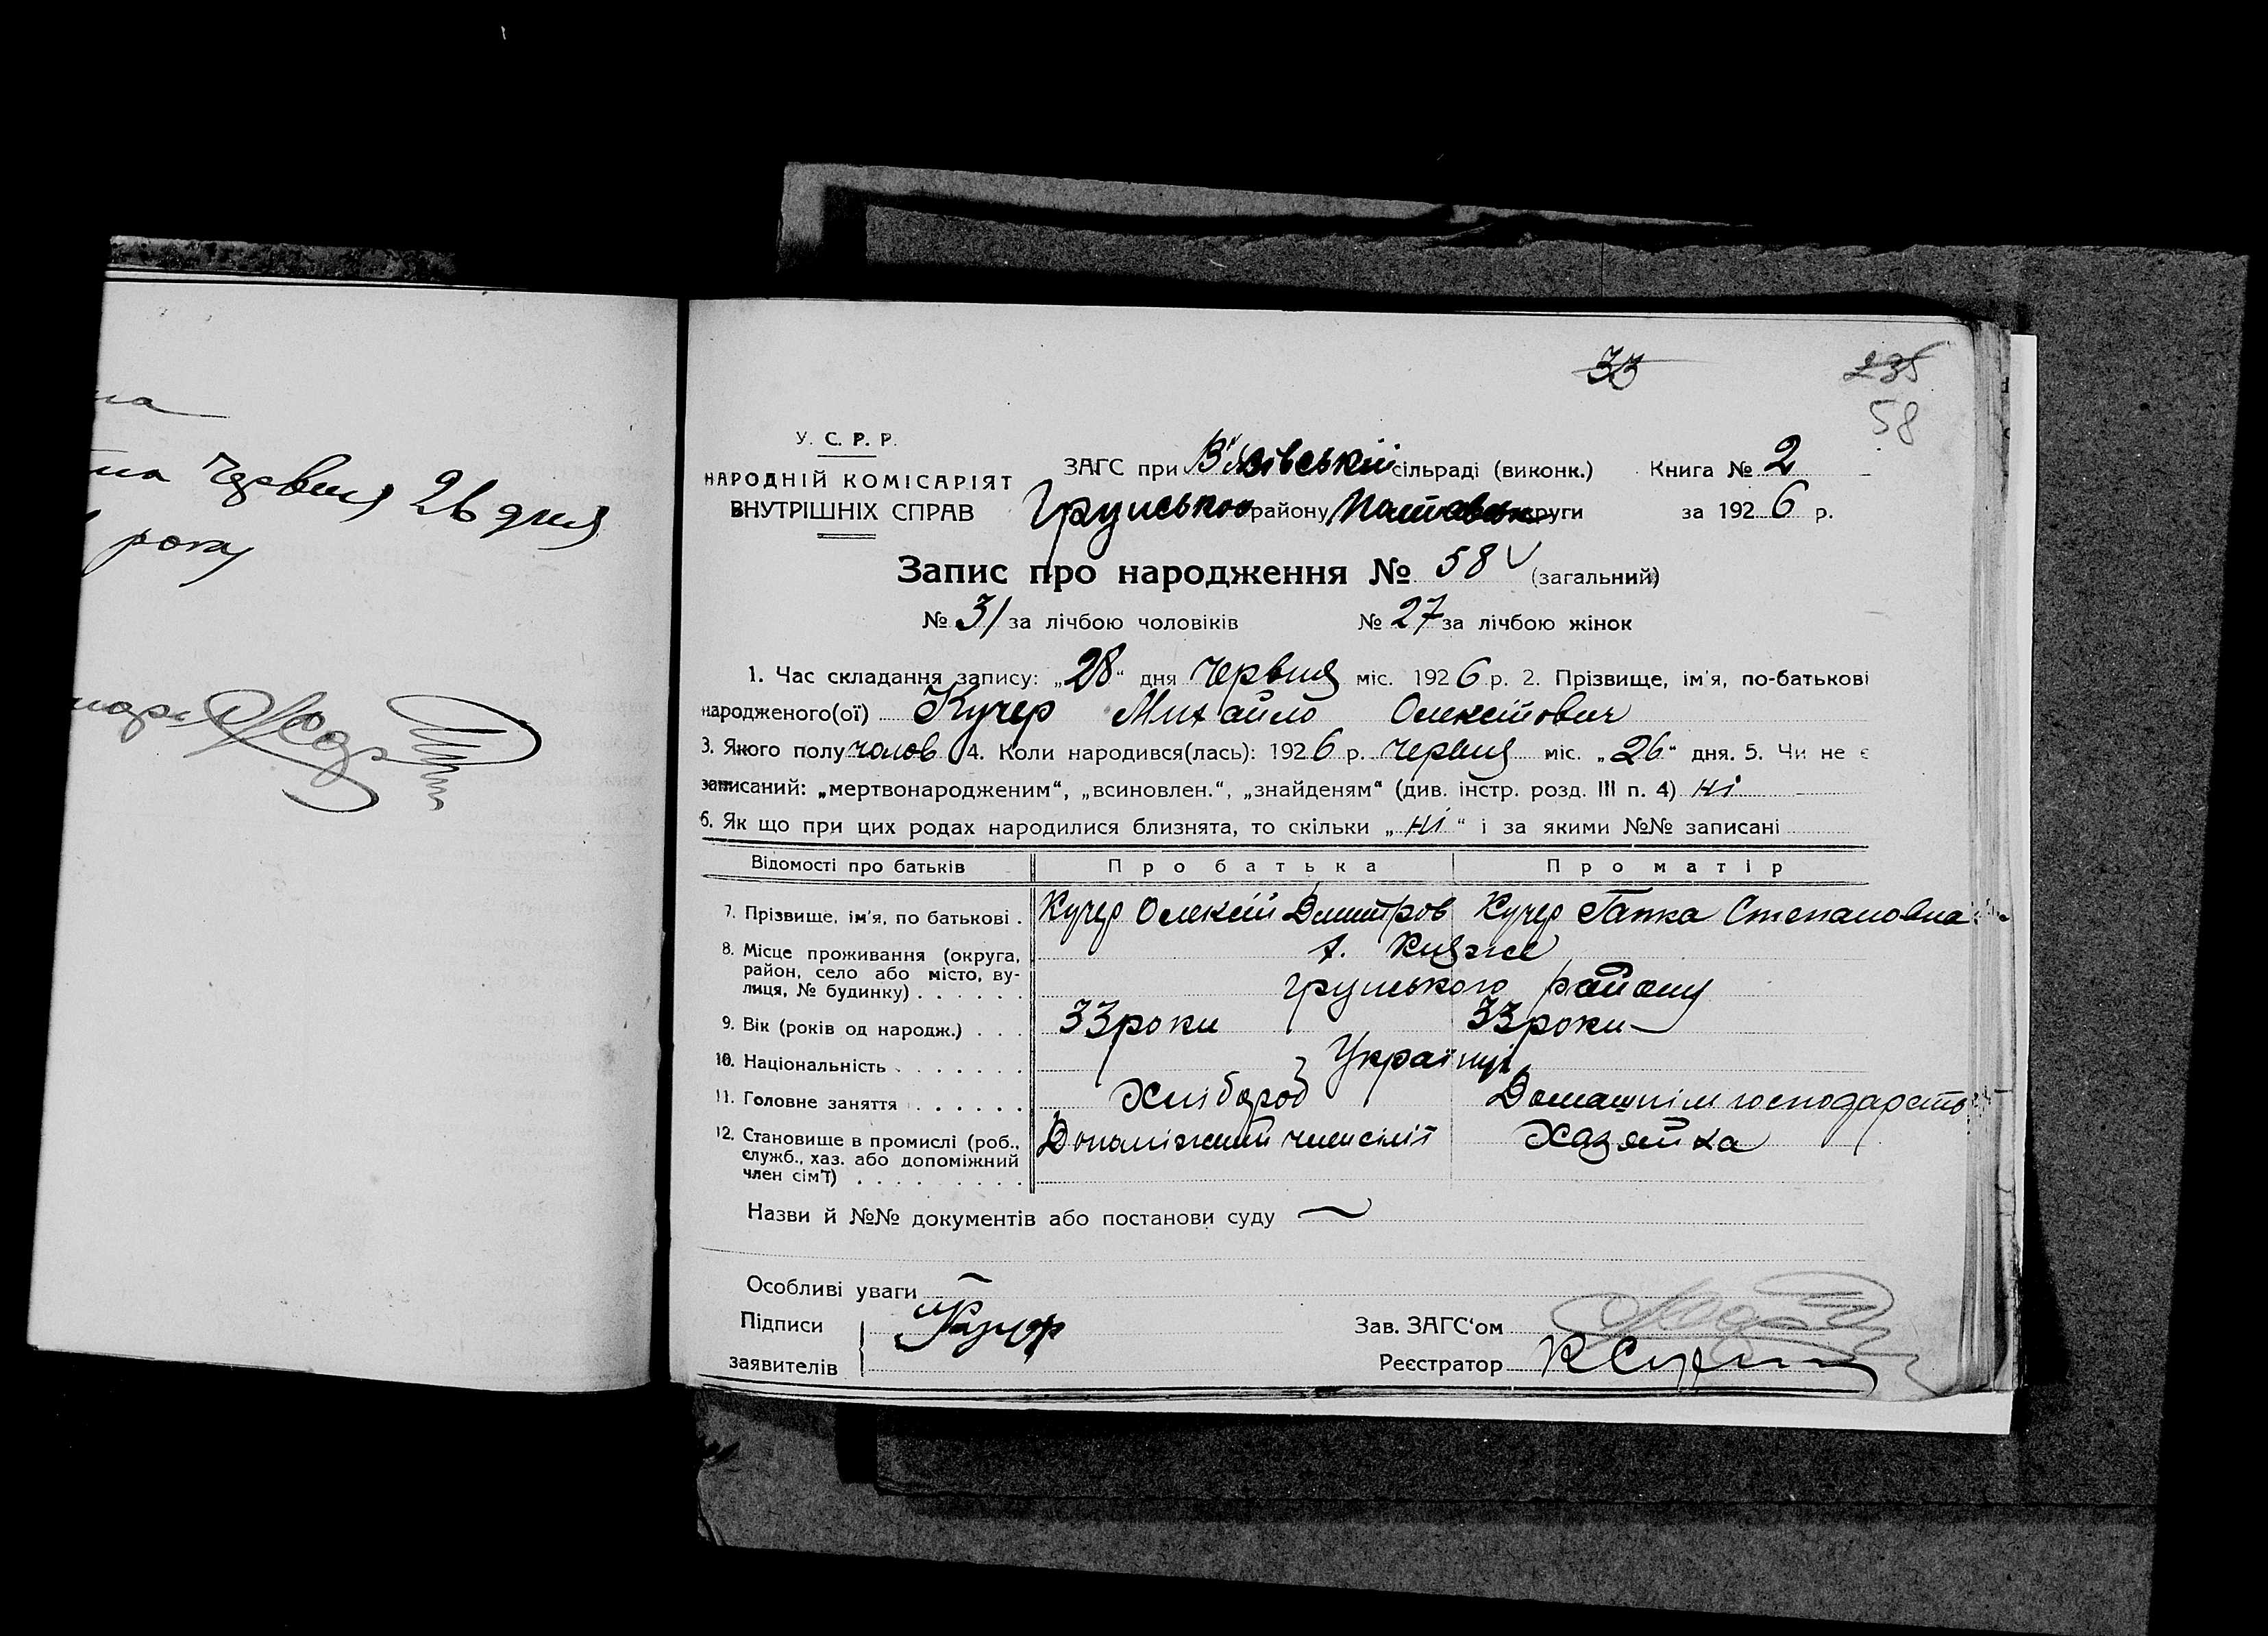 на
на червня 26 дня
року
33
235
58
У. С. Р. Р.
НАРОДНІЙ КОМІСАРІЯТ
ВНУТРІШНІХ СПРАВ
ЗАГС при В'язівській сільраді (виконк.) Книга № 2
Грунського району Полтавськ округи за 1926 р.
Запис про народження № 58 (загальний)
№ 31 за лічбою чоловіків № 27 за лічбою жінок
1. Час складання запису: „28“ дня Червня міс. 1926 р. 2. Прізвище, ім'я, по-батькові
народженого(ої) Кучер Михайло Олексійович
3. Якого полу чолов 4. Коли народився(лась): 1926 р. Червня міс. „26“ дня. 5. Чи не є
записаний: „мертвонародженим“, „всиновлен.“, „знайденям“ (див. інстр. розд. III п. 4) Ні
6. Як що при цих родах народилися близнята, то скільки „Ні“ і за якими №№ записані
Відомості про батьків Про батька Про матір
7. Прізвище, ім'я, по батькові . Кучер Олексій Дмитров Кучер Гапка Степановна
8. Місце проживання (округа,
район, село або місто, ву-
лиця, № будинку) . . . . . .
х. Княже
Грунського району
9. Вік (років од народж.) . . . 33 роки 33 роки
10. Національність . . . . . . . Українці
11. Головне заняття . . . . . . Хлібороб Домашнім господарств
12. Становище в промислі (роб.,
служб., хаз. або допоміжний
член сім'ї) . . . . . . . . .
Допоміжний член сім'ї Хазяйка
Назви й №№ документів або постанови суду
Особливі уваги
Підписи
заявителів
Кучер
Зав. ЗАГС'ом
Реєстратор